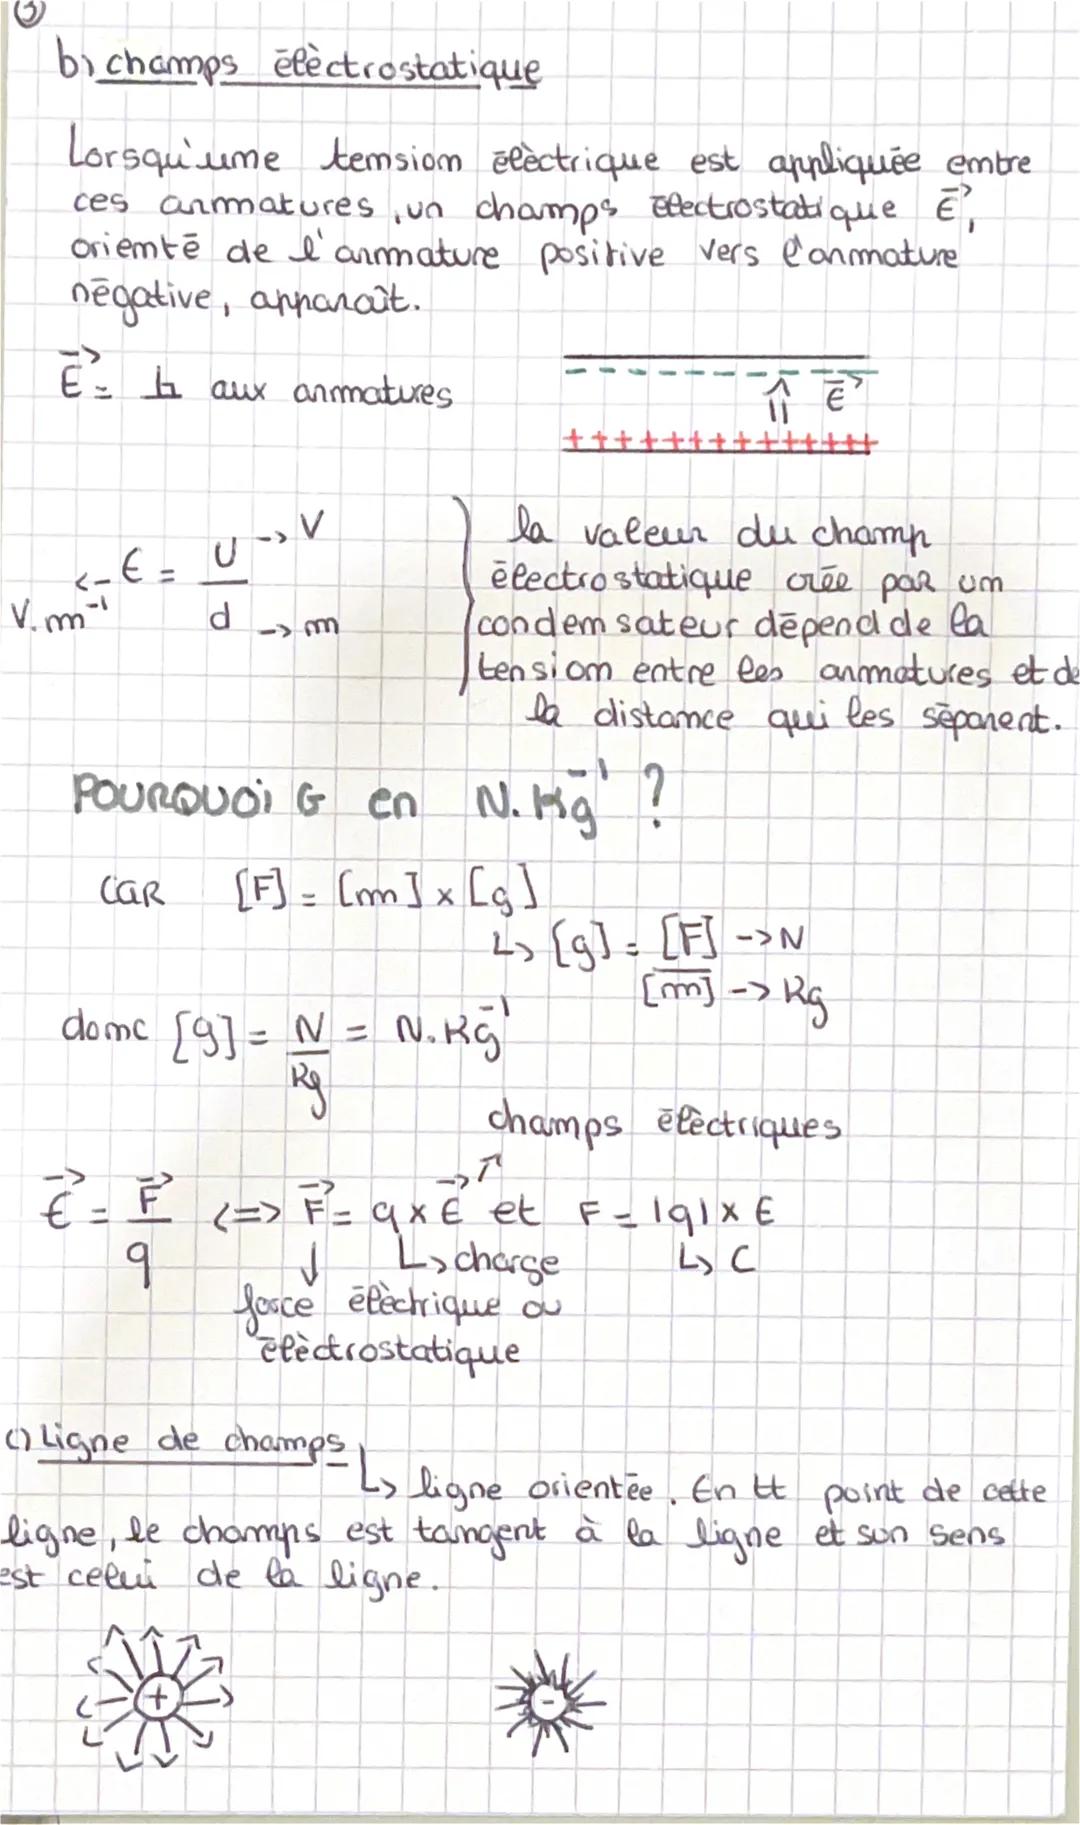 3
b) champs électrostatique
Lorsqu'une tension électrique est appliquée entre
ces armatures, un champs électrostatique E→,
orienté de l'armature positive vers l'armature
négative, apparaît.
E→ = ⊥ aux armatures
- - - - - - - - - - - -
⇑ E→
+ + + + + + + + + + + + + +
V.m⁻¹ <- E = U/d -> V -> m
la valeur du champ
électrostatique crée par un
condensateur dépend de la
tension entre les armatures et de
la distance qui les séparent.
POURQUOI G en N.Kg⁻¹ ?
CAR [F] = [m] x [g]
↳ [g] = [F]/[m] -> N -> Kg
donc [g] = N/Kg = N.Kg⁻¹
champs électriques
E→ = F→/q <=> F→ = q x E→ et F = |q| x E
↓ ↳ charge ↳ C
force électrique ou
électrostatique
c) Ligne de champs
↳ ligne orientée. En tt point de cette
ligne, le champs est tangent à la ligne et son sens
est celui de la ligne.
+ -